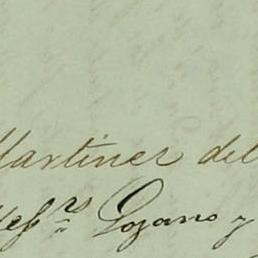 Martinez del
Lozano y